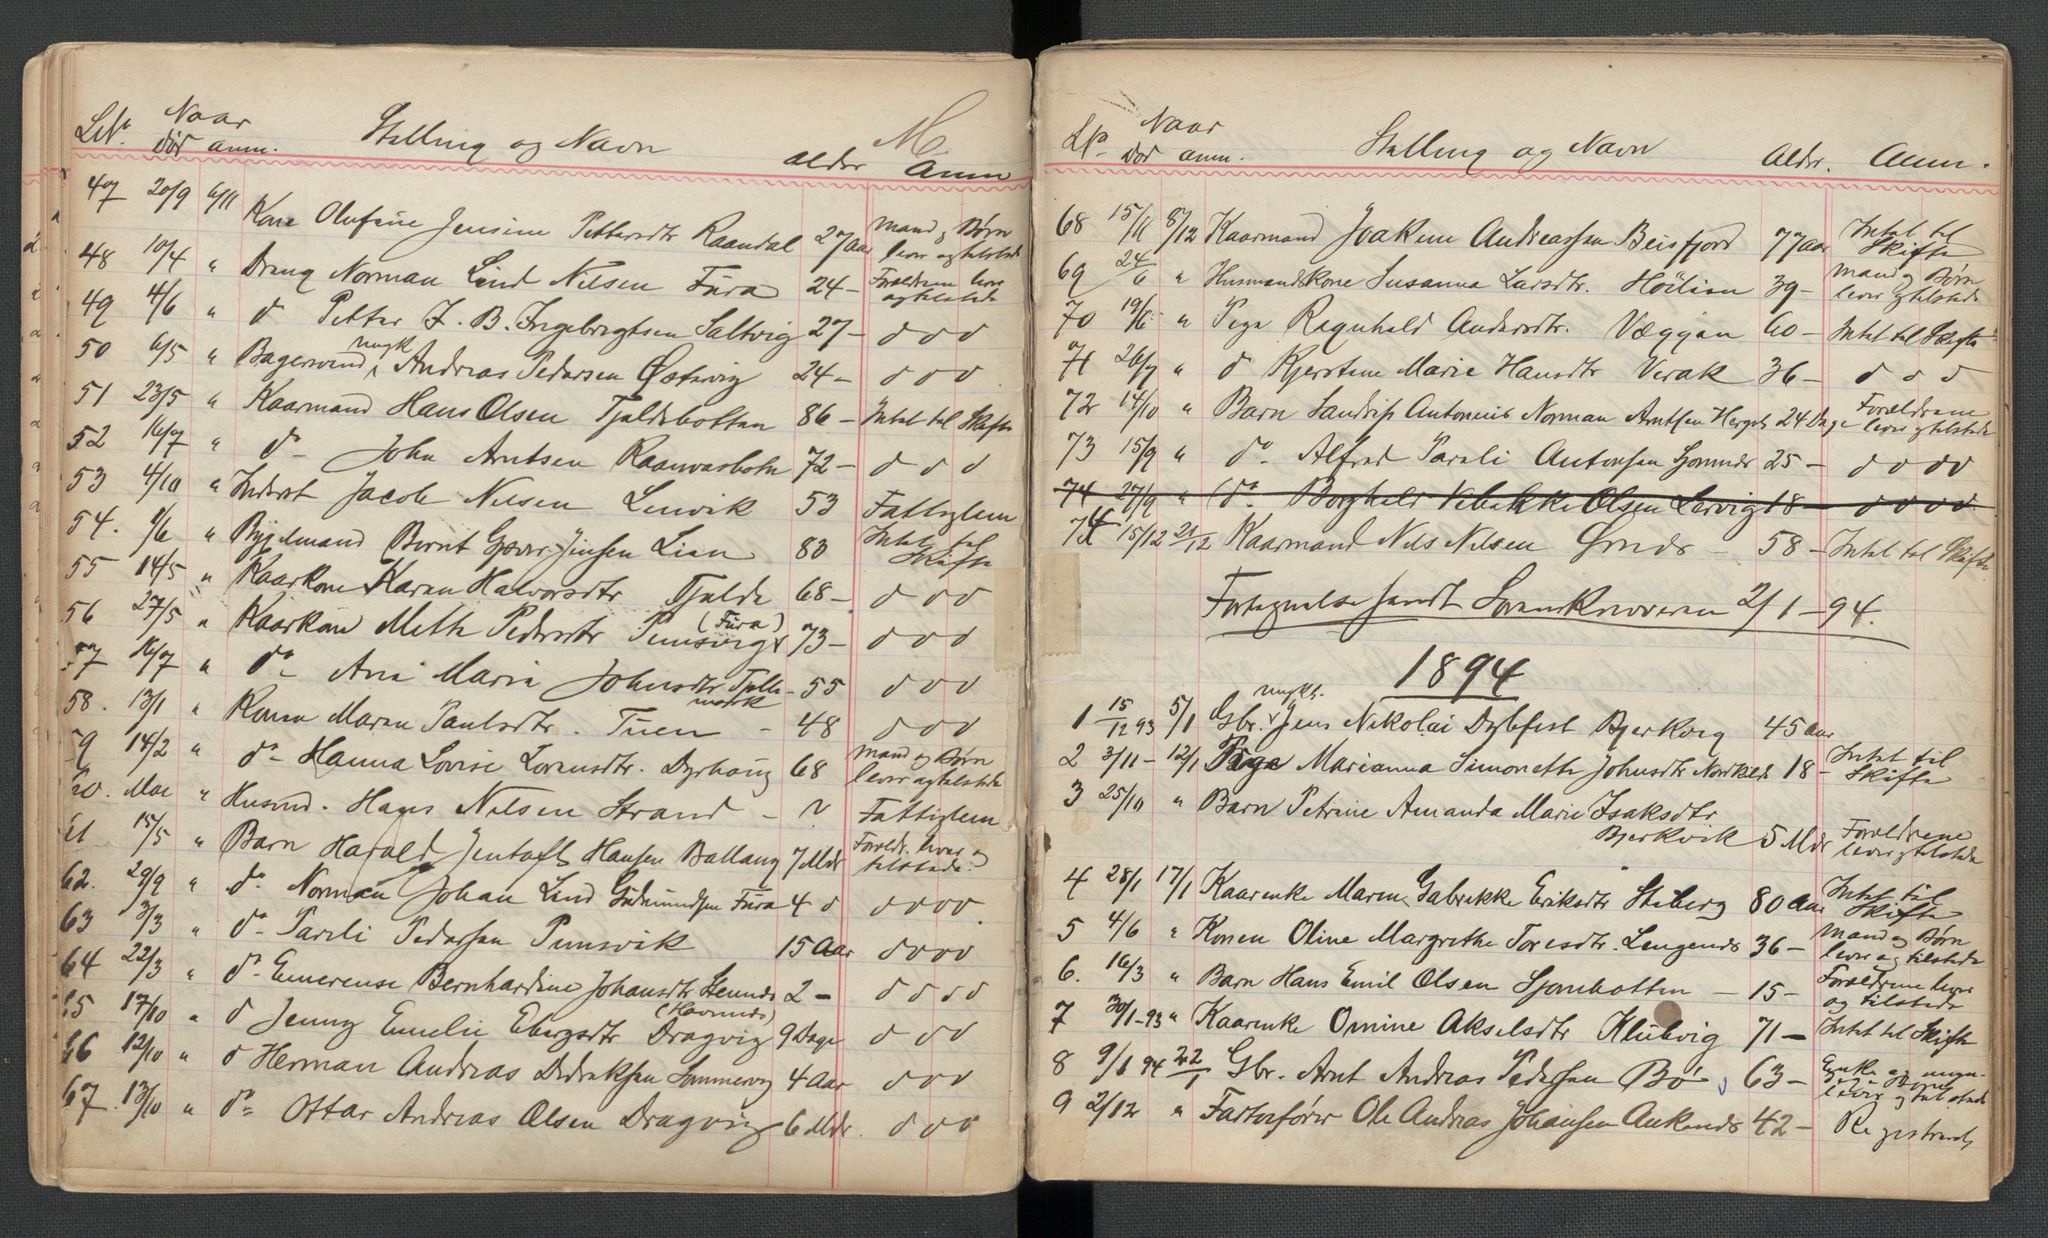 LNº Naar Stilling og Navn Alder Anm
død anm.
47 20/9 6/11 Kone Olufine Jensine Pettersdtr Raandal 27 Aar Mand og Børn lever og tilstede
48 10/4 " Dreng Norman Lind Nilsen Fura 24 – Forældrene leve og tilstede
49 4/6 " do Petter J. B. Ingebregtsen Saltvig 27 – d o o
50 6/5 " Bagersvend ungk Andreas Pedersen Østervig 24 – d o o
51 23/5 " Kaarmand Hans Olsen Tjeldebotten 86 – Intet til Skifte
52 16/7 " do John Arntsen Raanvasbotn 72 – d o d
53 4/10 " Inderst Jacob Nilsen Lenvik 53 Fattiglem
54. 1/6 " Bygdemand Bernt Jensen Lian 83 Intet til Skifte
55 14/5 " Kaarkone Karen Halvorsdtr Tjelde 68 – d o o
56 27/5 " Kaarkone Mette Pedersdtr Punsvig (Fura) 73 – d o o
57 16/7 " do Ane Maria Johnsdtr Tellemark – 55 d o o
58. 13/1 " Konen Maren Paulsdtr. Tuen – 48 d o o
59 14/2 " do Hanna Lovise Lorensdtr. Dyrhaug 68 Mand og Børn lever og tilstede
60. Mai " Husmd. Hans Nilsen Strand – ? Fattiglem
61 15/5 " Barn Harald Jentoft Hansen Ballang 7 Mdr Forældr. lever og tilstede.
62. 29/9 " do Norman Johan Lind Gudmundsen Fura 4 d d o o o
63 3/3 " do Pareli Pedersen Punsvik 15 Aar d o o o
64 22/3 " do Emerense Bernhardine Johansdtr Stennes 2 – d o o d
65 17/10 " d Jenny Emelie Ebergsdtr Dragvig (Havnnes) 9 Dage d o d
66 12/10 " d Herman Andreas Dedreksen Sommervg 4 Aar d o o
67. 13/10 " do Ottar Andreas Olsen Dragvig 6 Mdr. d o o
LNº Naar Stilling og Navn Alder. Anm.
Død anm.
68 15/11 8/12 Kaarmand Joakim Andreassen Beisfjord 77 Aar Intet til Skifte
69 24/6 " Husmandskone Susanna Larsdtr. Höilien 39 – Mand og Børn lever og tilstede
70 19/6 " Pige Ragnhild Andersdtr. Væggen 60 – Intet til Skifte
71 26/7 " d Kjerstine Marie Hansdtr Virak 36 – d o d
72 14/10 " Barn Sandrip Antonius Norman Arntsen Herget 24 Dage Forældrene lever og tilstede
73 15/9 " do. Alfred Pareli Antonsen 25 – d o d o
74 27/9 " do Borghild Olsen Lervig 18 – d o o d
74 15/12 21/12 Kaarmand Nils Nilsen Ørnes – 58 – Intet til Skifte
Fortegnelse sendt Sorenskriveren 2/1 – 94.
1894
1 15/12 93 5/1 Gbr. ungk. Jens Nikolai Dybfest Bjerkvig 45 Aar
2 3/11 – 12/1 Pige Marianna Simonette Johnsdtr 18 – Intet til Skifte
3 25/10 " Barn Petrine Amanda Marie Isaksdtr
Bjerkvik 5 Mdr Forældrene lever og tilstede
4 28/1 17/1 Kaarenke Maren Gabrikke Eriksdtr Stiberg 80 Aar Intet til Skifte
5 4/6 " Konen Oline Margrethe Toresdtr. Lengenes 36 – Mand og Børn lever og tilstede
6. 16/3 " Barn Hans Emil Olsen Sjombotten – 15 – Forældrene lever og tilstede
7 30/1–93 " Kaarenke Omine Akselsdtr Klubvig 71 – Intet til Skifte
8 9/1 94 22/1 Gbr. Arnt Andreas Pedersen Bø 63 – Enke og lever og tilstede
9 2/12 " Ole Andreas Johansen Ankenes 42 –